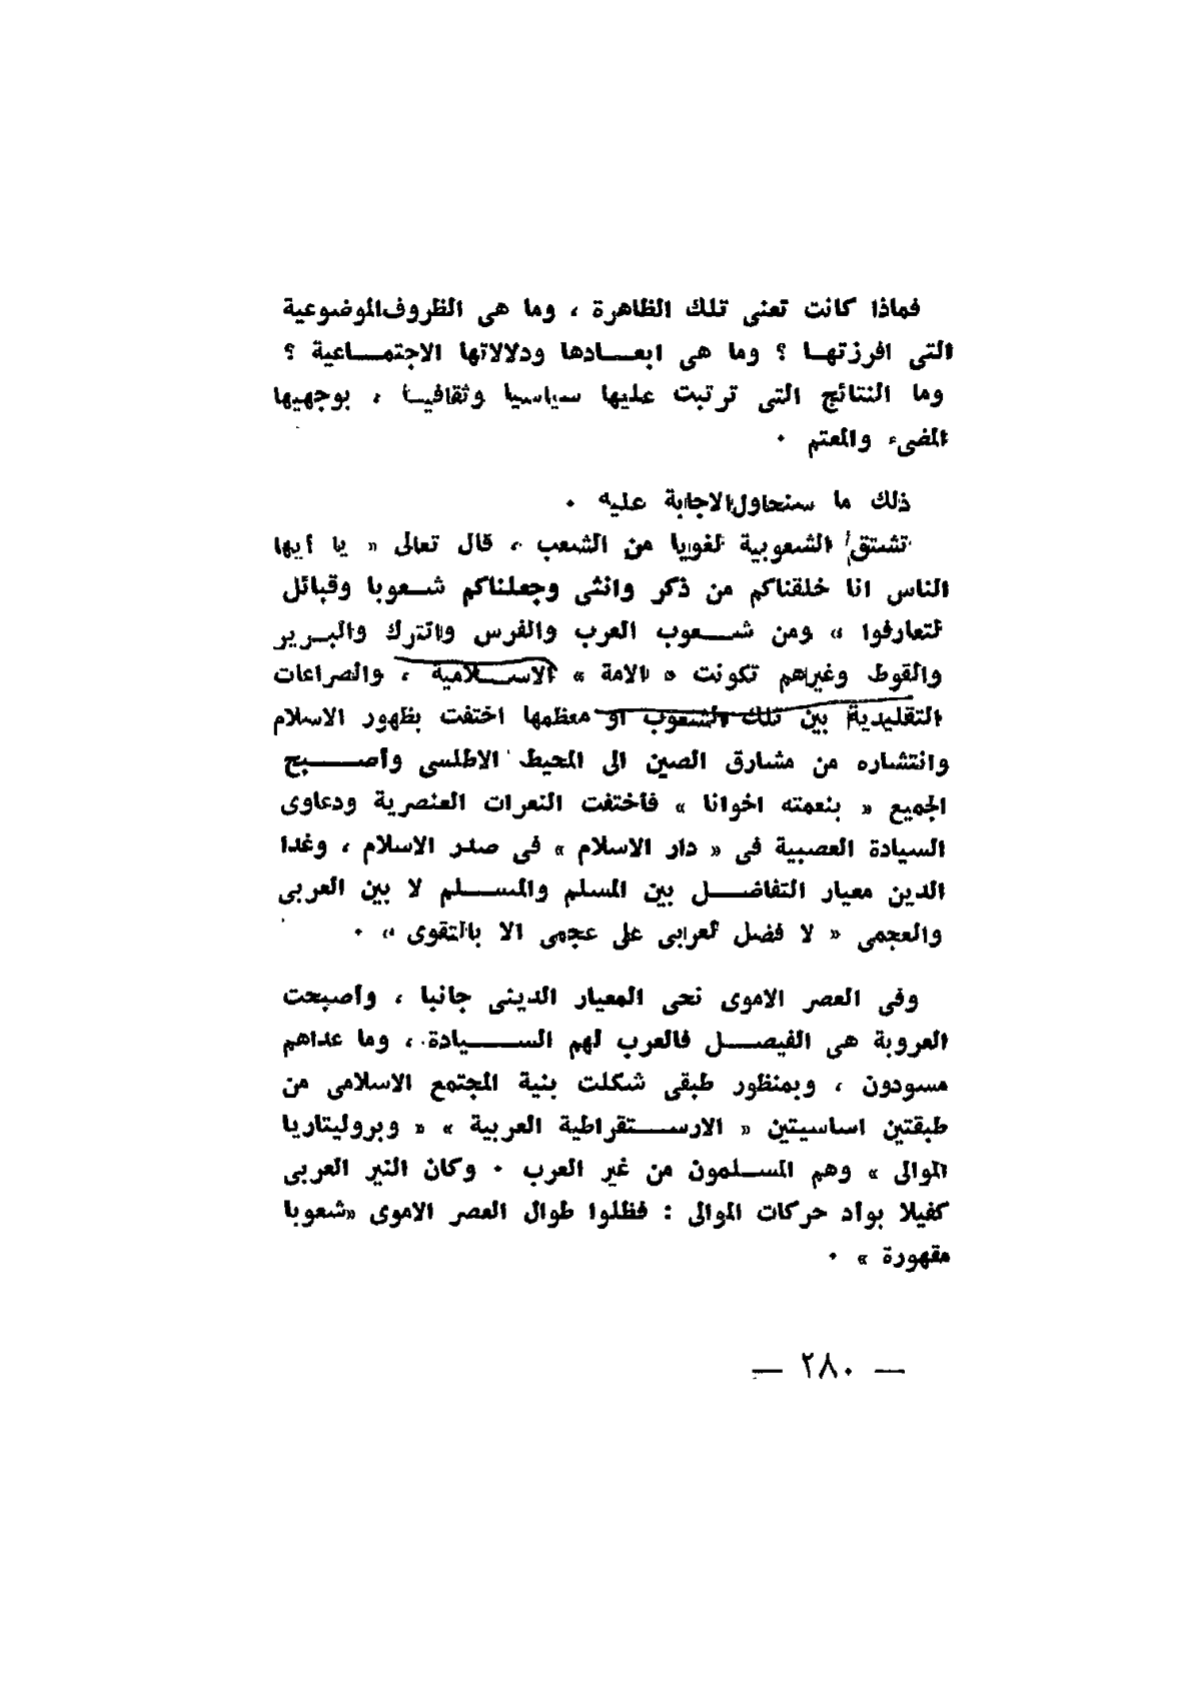 فماذا كانت تعنى تلك الظاهرة ، وما هى الظروف الموضوعية
التى افرزتهــا ؟ وما هى ابعــــادها ودلالاتها الاجتمــــاعية ؟
وما النتائج التى ترتبت عليها سياسيا وثقافيــا ، بوجهيها
المضىء والمعتم ٠
ذلك ما سنحاول الاجابة عليه ٠
تشتق الشعوبية لغويا من الشعب ، قال تعالى « يا أيها
الناس انا خلقناكم من ذكر وانثى وجعلناكم شــعوبا وقبائل
لتعارفوا » ومن شـــعوب العرب والفرس والترك والبــربر
والقوط وغيراهم تكونت « الامة » الاســـلامية ، والصراعات
التقليدية بين تلك الشعوب او معظمها اختفت بظهور الاسلام
وانتشاره من مشارق الصين الى المحيط الاطلسى وأصـــــبح
الجميع « بنعمته اخوانا » فأختفت النعرات العنصرية ودعاوى
السيادة العصبية فى « دار الاسلام » فى صدر الاسلام ، وغدا
الدين معيار التفاضـــل بين المسلم والمســـلم لا بين العربى
والعجمى « لا فضل لعرابى على عجمى الا بالتقوى » ٠
وفى العصر الاموى نحى المعيار الدينى جانبا ، وأصبحت
العروبة هى الفيصـــل فالعرب لهم الســـــيادة ، وما عداهم
مسودون ، وبمنظور طبقى شكلت بنية المجتمع الاسلامى من
طبقتين اساسيتين « الارســـتقراطية العربية » « وبروليتاريا
الموالى » وهم المســلمون من غير العرب ٠ وكان النير العربى
كفيلا بوأد حركات الموالى : فظلوا طوال العصر الاموى «شعوبا
مقهورة » ٠
— ٢٨٠ —